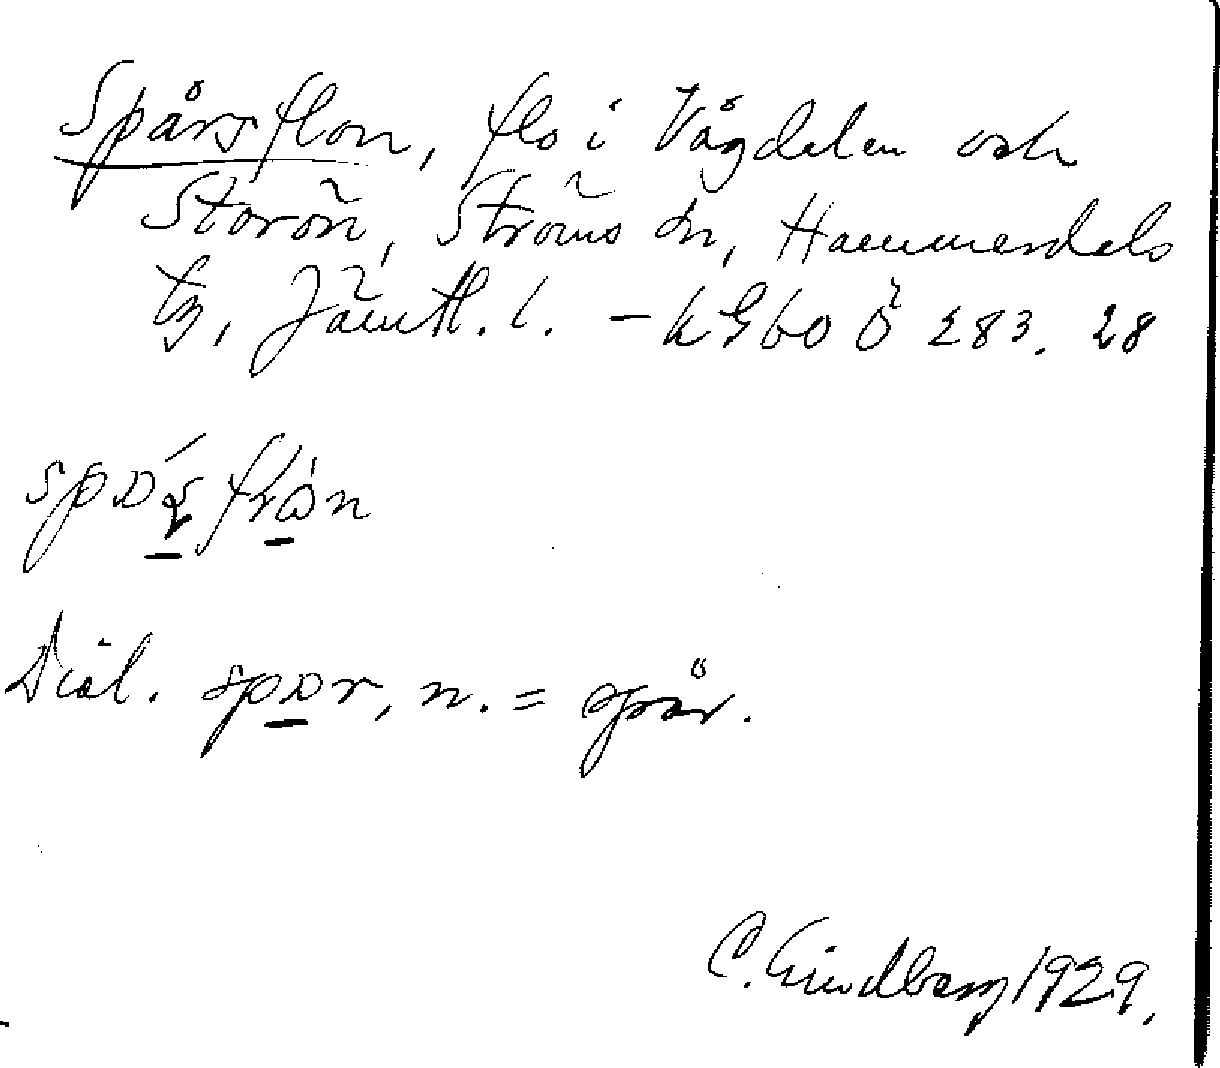 Spårsflon, flo i Vågdelen och
Storön, Ströms sn, Hammerdals
tg, Jämtl. l. – kGbo Ö 283. 28
Dial. spor, n. = spår.
C. Lindberg 1929.